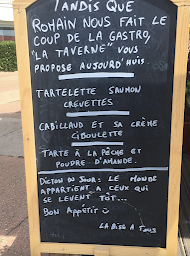 TANDIS QUE
ROMAIN NOUS FAIT LE
COUP DE LA GASTRO,
"LA TAVERNE" VOUS
PROPOSE AUJOURD'HUI.
TARTELETTE SAUMON
CREVETTES
CABILLAUD ET SA CRÈME
CIBOULETTE
TARTE À LA PÊCHE ET
POUDRE D'AMANDE.
DICTON DU JOUR: LE MONDE
APPARTIENT A CEUX QUI
SE LEVENT TÔT...
BON APPÉTIT
LA BISE A TOUS